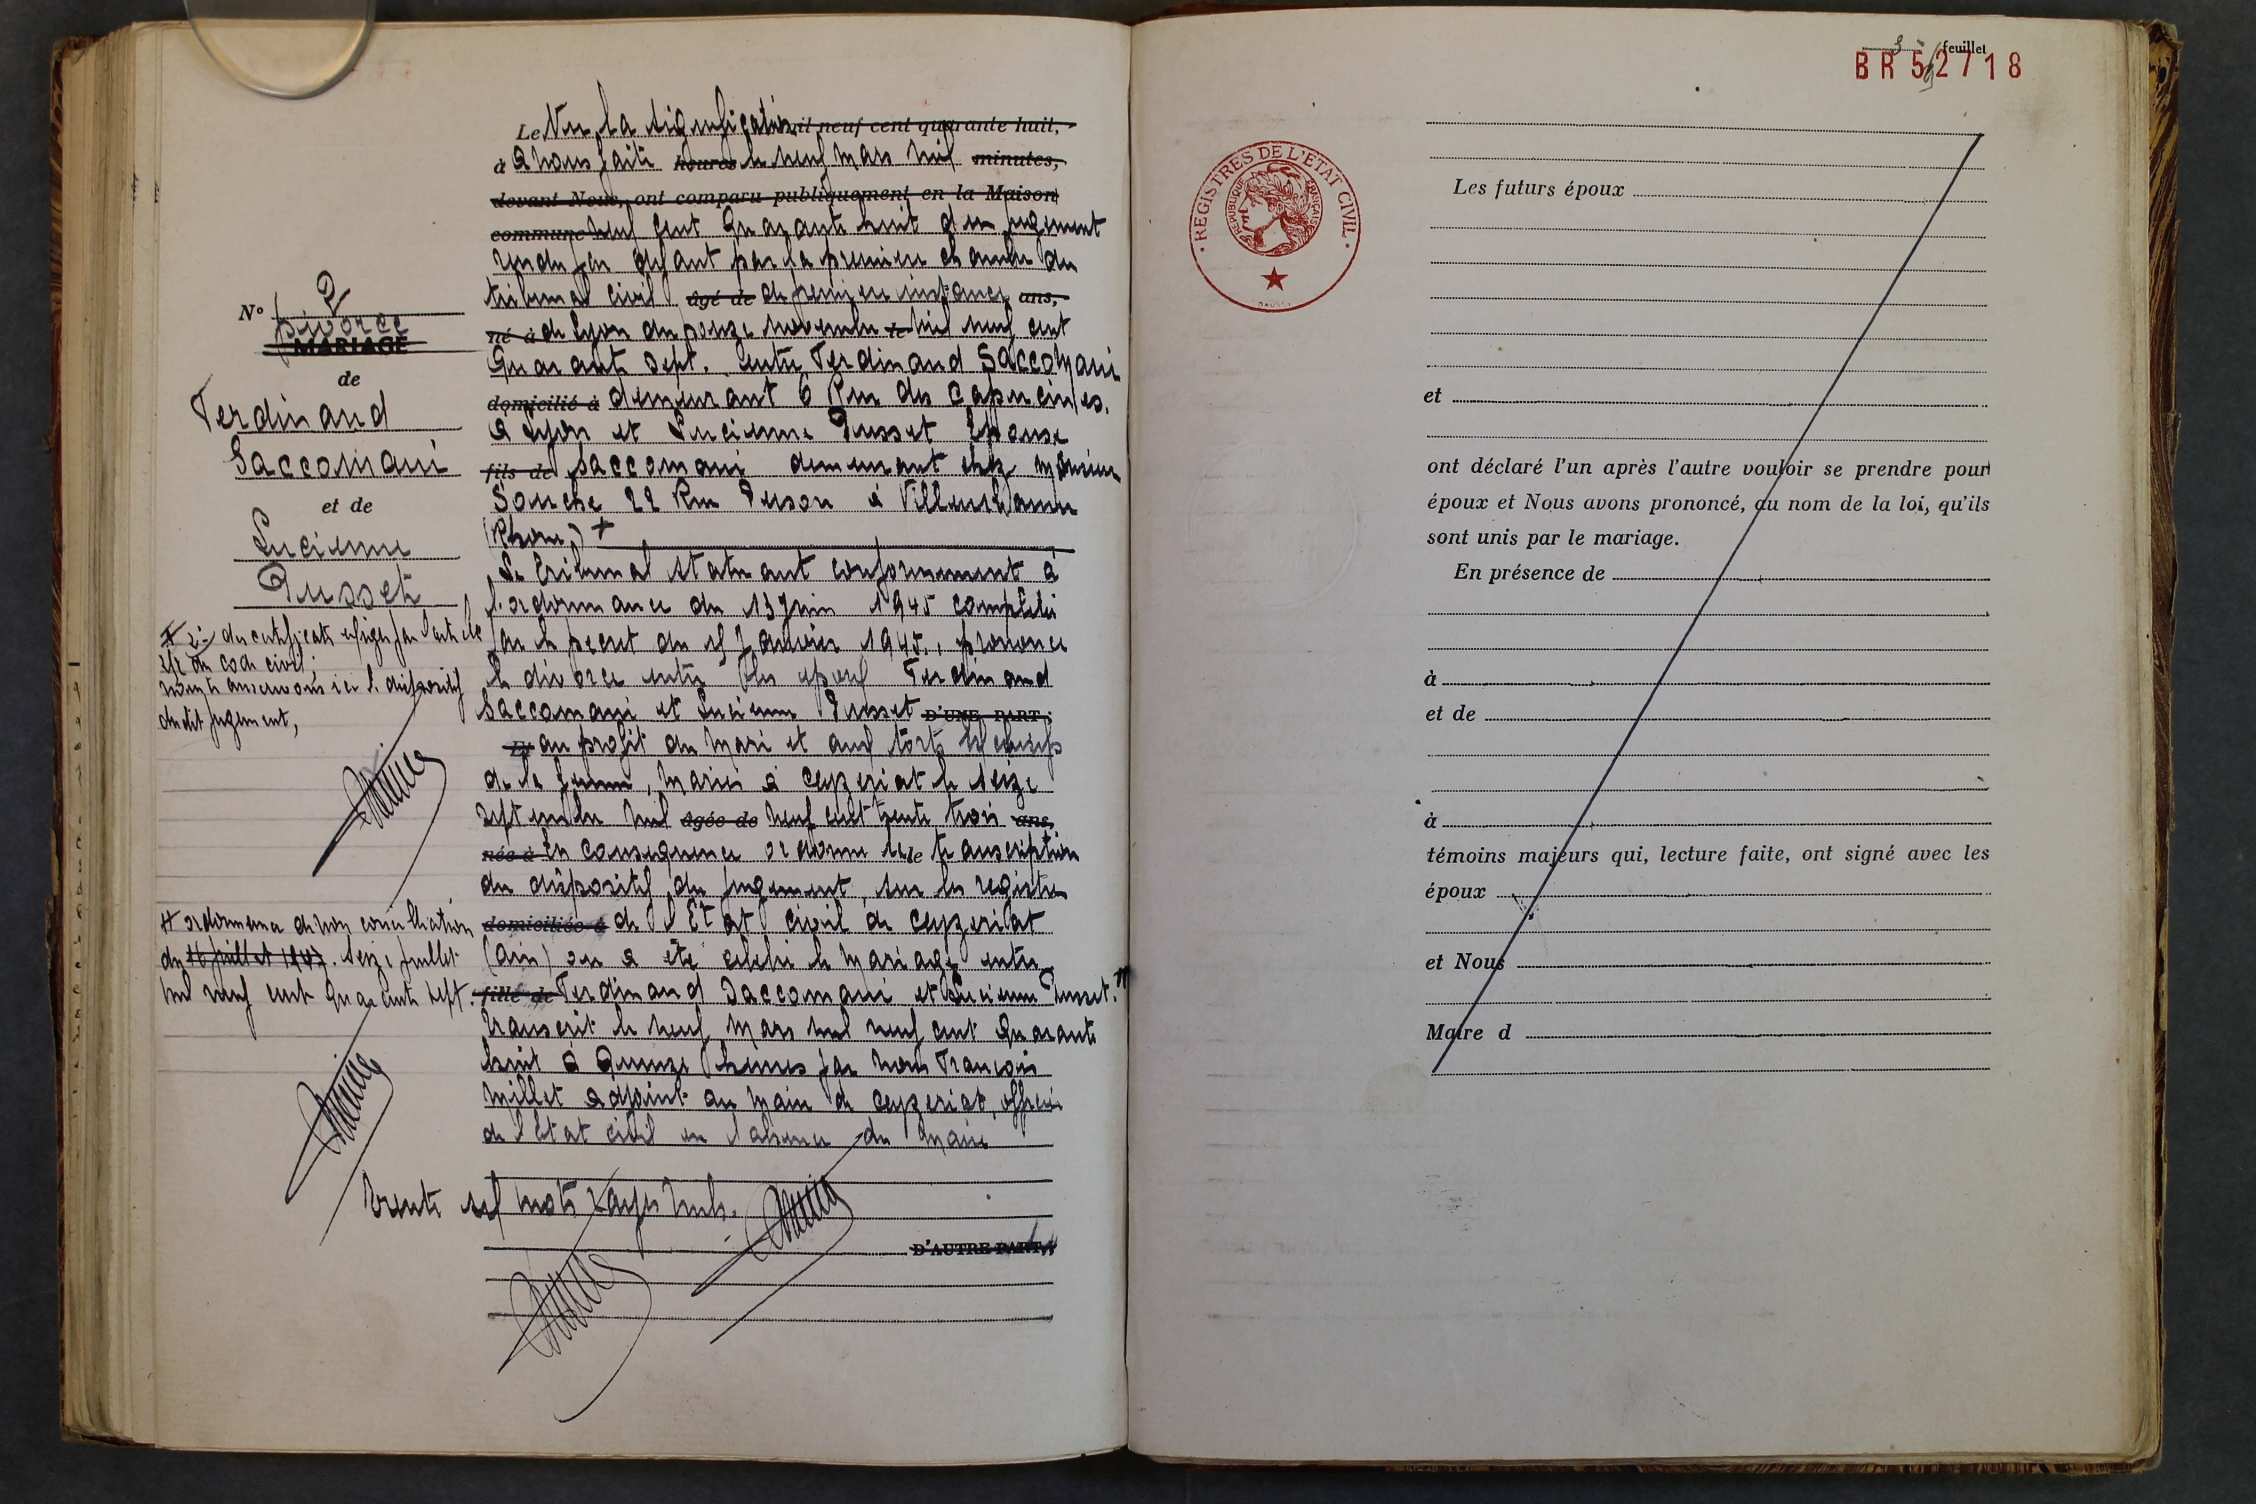 Le Vu la signification mil neuf cent quarante huit,
à A nous faite heures le neuf mars mil minutes,
devant Nous, ont comparu publiquement en la Maison
commune neuf cent Quarante huit d'un jugement
rendu par défaut par la première chambre du
tribunal civil âgé de de première instance ans,
né à de Lyon du onze novembre le mil neuf cent
Quarante sept. entre Ferdinand Saccomani
domicilié à demeurant 6 Rue des Capucines.
à Lyon et Lucienne Pusset Epouse
fils de Saccomani demeurant chez Monsieur
Souche 22 Rue à Villeurbanne
(Rhône) +
Le Tribunal statuant conformément à
l'ordonnance du 13 Juin 1945 complétée
par le décret du Janvier 1945, prononce
le divorce entre les époux Ferdinand
Saccomani et Lucienne Pusset D'UNE PART ;
Et au profit du mari et aux torts exclusifs
de la femme, mariés à Ceyzeriat le seize
septembre mil âgée de neuf cent trente trois ans,
née à En conséquence ordonne la le transcription
du dispositif du jugement, sur les registres
domiciliée à de l'Etat civil de Ceyzeriat
(Ain) où a été célébré le mariage entre
fille de Ferdinand Saccomani et Lucienne Pusset. #
Transcrit le neuf Mars mil neuf cent Quarante
huit à Quinze heures par nous François
Millet adjoint au Maire de Ceyzeriat, officier
de l'Etat civil en l'absence du Maire
Trente mots rayés nuls.
D'AUTRE PART,
N° 2
Divorce
MARIAGE
de
Ferdinand
Saccomani
et de
Lucienne
Pusset
+ 2° des certificats exigés par l'article
du code civil ;
nous transcrivons ici le dispositif
dudit jugement,
# ordonnance de non conciliation
du 16 juillet 1947. seize Juillet
mil neuf cent Quarante sept.
3 feuillet
BR 52718
REGISTRES DE L'ETAT CIVIL
REPUBLIQUE FRANÇAISE
Les futurs époux
et
ont déclaré l'un après l'autre vouloir se prendre pour
époux et Nous avons prononcé, au nom de la loi, qu'ils
sont unis par le mariage.
En présence de
à
et de
à
témoins majeurs qui, lecture faite, ont signé avec les
époux
et Nous
Maire d